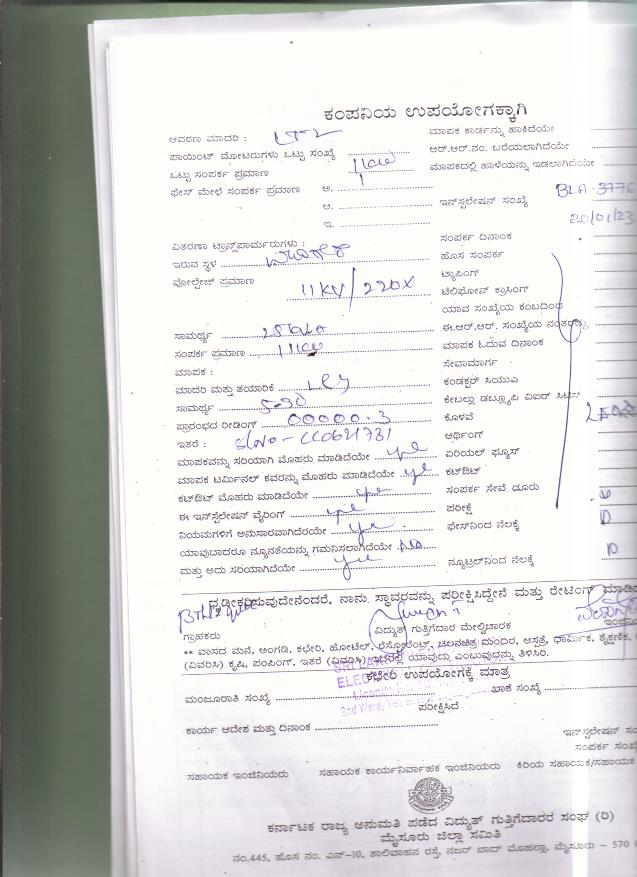 ಕಂಪನಿಯ ಉಪಯೋಗಕ್ಕಾಗಿ
ಆವರಣ ಮಾದರಿ : LT2 ಮಾಪಕ ಕಾರ್ಡನ್ನು ಹಾಕಿದೆಯೇ
ಪಾಯಿಂಟ್ ಮೋಟರುಗಳು ಒಟ್ಟು ಸಂಖ್ಯೆ ಆರ್.ಆರ್.ನಂ. ಬರೆಯಲಾಗಿದೆಯೇ
ಒಟ್ಟು ಸಂಪರ್ಕ ಪ್ರಮಾಣ 1 KW ಮಾಪಕದಲ್ಲಿ ಹಾಳೆಯನ್ನು ಇಡಲಾಗಿದೆಯೇ
ಫೇಸ್ ಮೇಳೆ ಸಂಪರ್ಕ ಪ್ರಮಾಣ ಅ.
ಆ. ಇನ್‌ಸ್ಟಲೇಷನ್ ಸಂಖ್ಯೆ BLA-3776
ಇ. 20/01/23
ವಿತರಣಾ ಟ್ರಾನ್ಸ್‌ಫಾರ್ಮರುಗಳು : ಸಂಪರ್ಕ ದಿನಾಂಕ
ಇರುವ ಸ್ಥಳ ಹೊಸ ಸಂಪರ್ಕ
ವೋಲ್ಟೇಜ್ ಪ್ರಮಾಣ 11KV/220V ಟ್ಯಾಪಿಂಗ್
ಟೆಲಿಫೋನ್ ಕ್ರಾಸಿಂಗ್
ಯಾವ ಸಂಖ್ಯೆಯ ಕಂಬದಿಂದ
ಸಾಮರ್ಥ್ಯ 25KVA ಈ.ಆರ್.ಆರ್. ಸಂಖ್ಯೆಯ ನಂತರ
ಸಂಪರ್ಕ ಪ್ರಮಾಣ 1 KW ಮಾಪಕ ಓದುವ ದಿನಾಂಕ
ಮಾಪಕ : ಸೇವಾಮಾರ್ಗ
ಮಾದರಿ ಮತ್ತು ತಯಾರಿಕೆ ಕಂಡಕ್ಟರ್ ಸಿಯುಎ
ಸಾಮರ್ಥ್ಯ 5-30 ಕೇಬಲ್ಲು ಡಬ್ಲ್ಯೂಪಿ ವಿಐರ್
ಪ್ರಾರಂಭದ ರೀಡಿಂಗ್ 00000.3 ಕೊಳವೆ
ಇತರೆ : SlNo-CC0621731 ಆರ್ಥಿಂಗ್
ಮಾಪಕವನ್ನು ಸರಿಯಾಗಿ ಮೊಹರು ಮಾಡಿದೆಯೇ ye ಏರಿಯಲ್ ಫ್ಯೂಸ್
ಮಾಪಕ ಟರ್ಮಿನಲ್ ಕವರನ್ನು ಮೊಹರು ಮಾಡಿದೆಯೇ ye ಕಟ್‌ಔಟ್
ಕಟ್‌ಔಟ್ ಮೊಹರು ಮಾಡಿದೆಯೇ ye ಸಂಪರ್ಕ ಸೇವೆ ದೂರು
ಈ ಇನ್‌ಸ್ಟಲೇಷನ್ ವೈರಿಂಗ್ ye ಪರೀಕ್ಷೆ
ನಿಯಮಗಳಿಗೆ ಅನುಸಾರವಾಗಿದೆರಯೇ ye ಫೇಸ್‌ನಿಂದ ನೆಲಕ್ಕೆ
ಯಾವುಬಾದರೂ ನ್ಯೂನತೆಯನ್ನು ಗಮನಿಸಲಾಗಿದೆಯೇ NO
ಮತ್ತು ಅದು ಸರಿಯಾಗಿದೆಯೇ ye ನ್ಯೂಟ್ರಲ್‌ನಿಂದ ನೆಲಕ್ಕೆ
ದೃಢೀಕರಿಸುವುದೇನೆಂದರೆ, ನಾನು ಸ್ಥಾವರವನ್ನು ಪರೀಕ್ಷಿಸಿದ್ದೇನೆ ಮತ್ತು ರೇಟಿಂಗ್
ಗ್ರಾಹಕರು ವಿದ್ಯುತ್ ಗುತ್ತಿಗೆದಾರ ಮೇಲ್ವಿಚಾರಕ
** ವಾಸದ ಮನೆ, ಅಂಗಡಿ, ಕಛೇರಿ, ಹೋಟೆಲ್, ರೆಸ್ಟೋರೆಂಟ್, ಚಲನಚಿತ್ರ ಮಂದಿರ, ಆಸ್ಪತ್ರೆ, ಧಾರ್ಮಿಕ, ಶೈಕ್ಷಣಿಕ,
(ವಿವರಿಸಿ) ಕೃಷಿ, ಪಂಪಿಂಗ್, ಇತರೆ (ವಿವರಿಸಿ) ಇದರಲ್ಲಿ ಯಾವುದ್ದು ಎಂಬುವುದನ್ನು ತಿಳಿಸಿರಿ.
ಕಛೇರಿ ಉಪಯೋಗಕ್ಕೆ ಮಾತ್ರ
ಮಂಜೂರಾತಿ ಸಂಖ್ಯೆ ಖಾತೆ ಸಂಖ್ಯೆ
ಪರೀಕ್ಷಿಸಿದೆ
ಕಾರ್ಯ ಆದೇಶ ಮತ್ತು ದಿನಾಂಕ
ಸಂಪರ್ಕ
ಸಹಾಯಕ ಇಂಜಿನಿಯರು ಸಹಾಯಕ ಕಾರ್ಯನಿರ್ವಾಹಕ ಇಂಜಿನಿಯರು ಕಿರಿಯ ಸಹಾಯಕ/ಸಹಾಯಕ
ಕರ್ನಾಟಕ ರಾಜ್ಯ ಅನುಮತಿ ಪಡೆದ ವಿದ್ಯುತ್ ಗುತ್ತಿಗೆದಾರರ ಸಂಘ (ರಿ)
ಮೈಸೂರು ಜಿಲ್ಲಾ ಸಮಿತಿ
ನಂ.445, ಹೊಸ ನಂ. ಎನ್-10, ಶಾಲಿವಾಹನ ರಸ್ತೆ, ನಜರ್ ಬಾದ್ ಮೊಹಲ್ಲಾ, ಮೈಸೂರು – 570